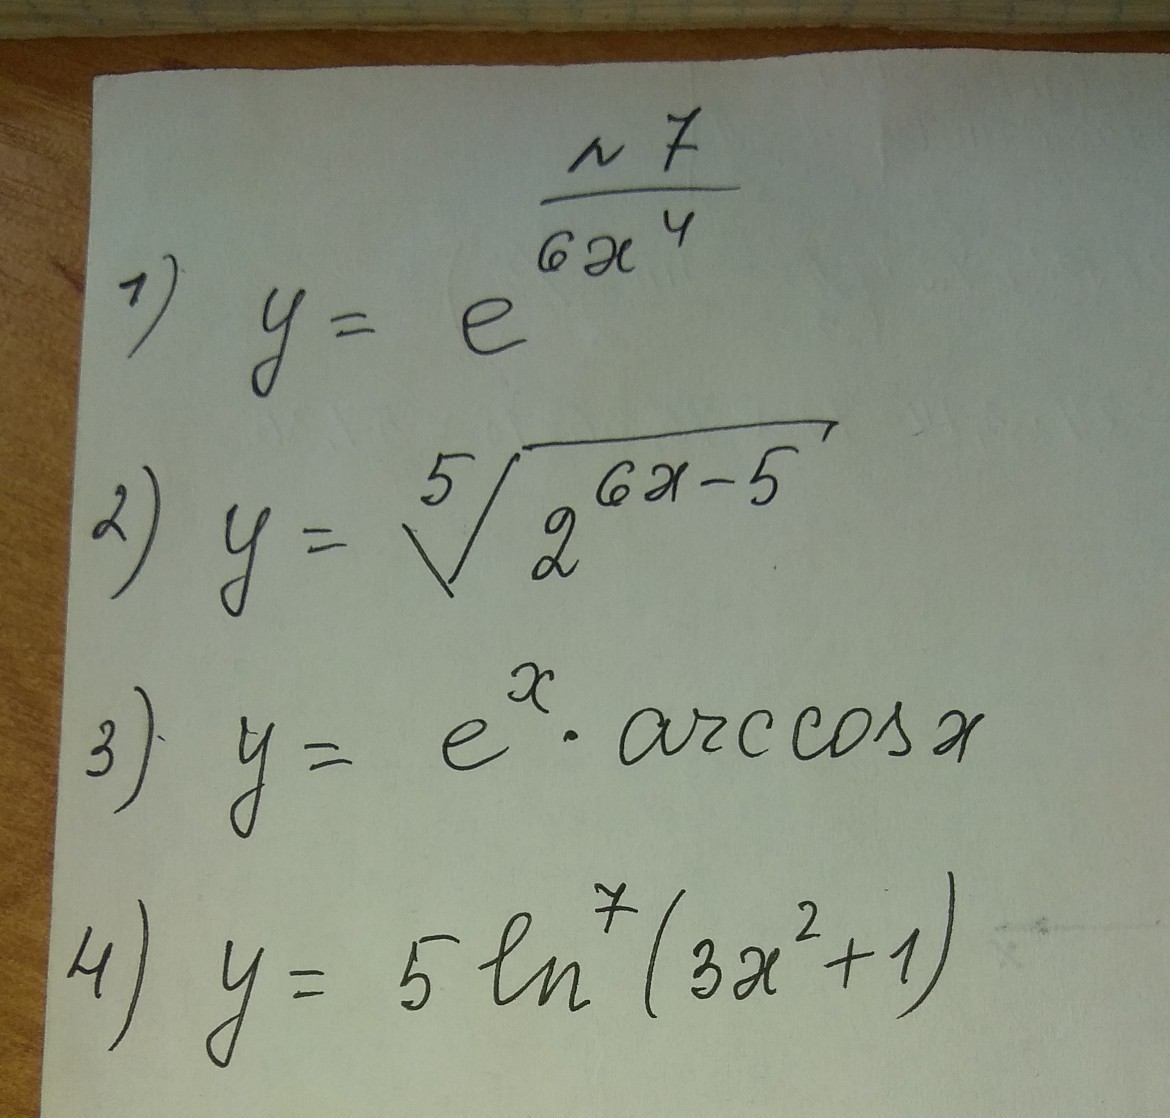 № 7
1) y = e^{6x^4}
2) y = \sqrt[5]{2^{6x-5}}
3) y = e^x · arccos x
4) y = 5 ln^7 (3x^2 + 1)